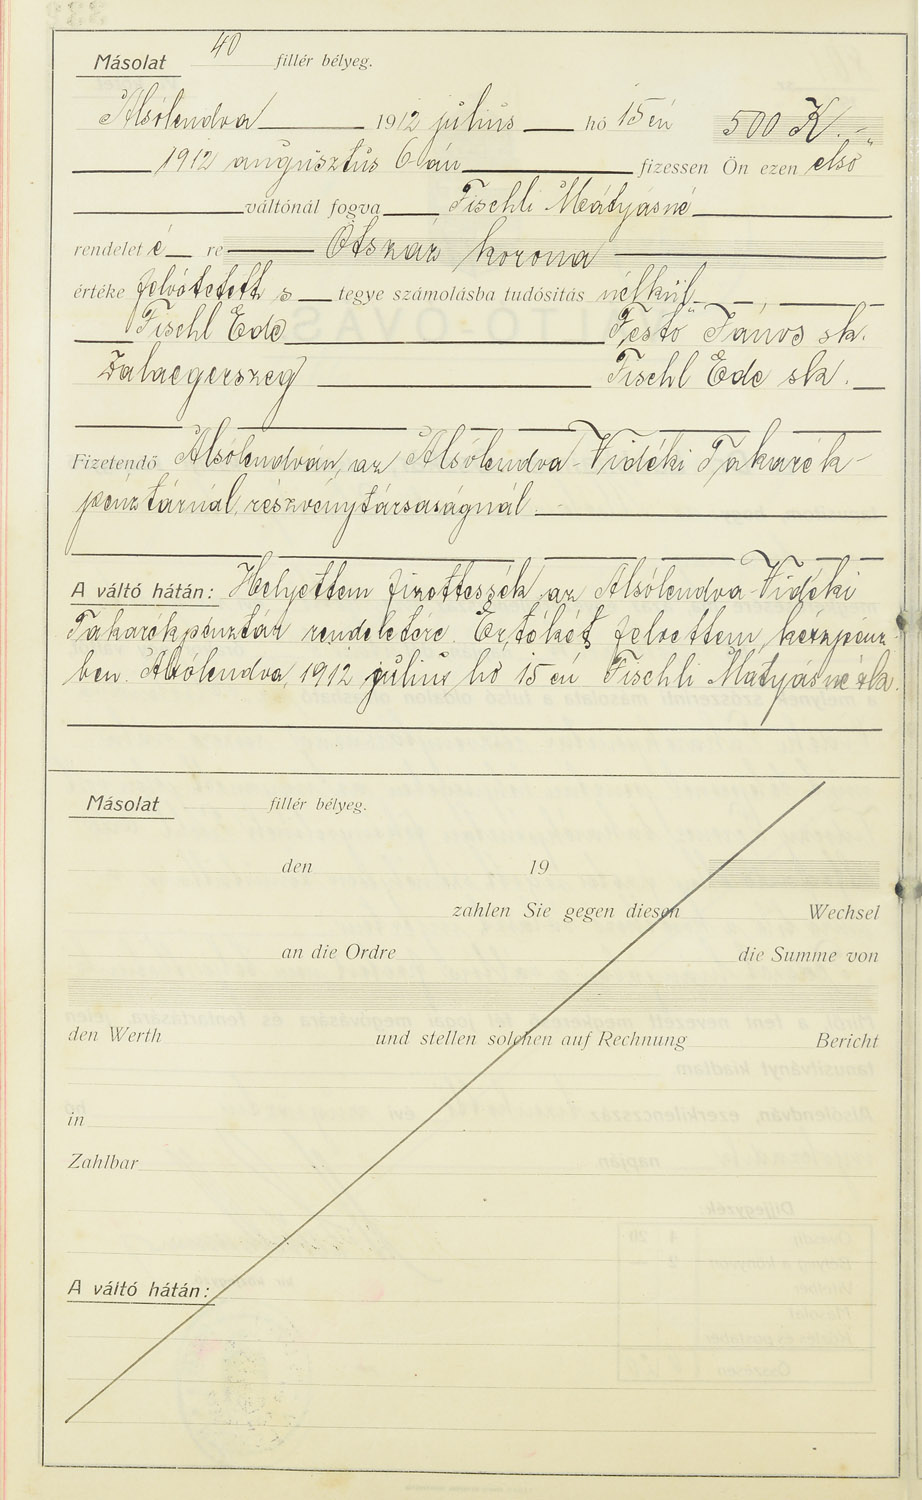 Másolat 40 fillér bélyeg.
Alsólendva 1912 július hó 15 én 500 K.-
1912 augusztus 6 án fizessen Ön ezen első
váltónál fogva Fischli Mátyásné
rendelet é re Ötszáz korona
értéke felvétetett s tegye számolásba tudósítás nélkül
Fischl Ede Festő János sk.
Zalaegerszeg Fischl Ede sk.
Fizetendő Alsólendván, az Alsólendva-Vidéki Takarék-
pénztárnál, részvénytársaságnál.
A váltó hátán: Helyettem fizettessék az Alsólendva-Vidéki
Takarékpénztár rendeletére. Értékét felvettem, készpénz-
ben. Alsólendva, 1912 július hó 15 én Fischli Mátyásné sk.
Másolat fillér bélyeg.
den 19
zahlen Sie gegen diesen Wechsel
an die Ordre die Summe von
den Werth und stellen solchen auf Rechnung Bericht
in
Zahlbar
A váltó hátán: